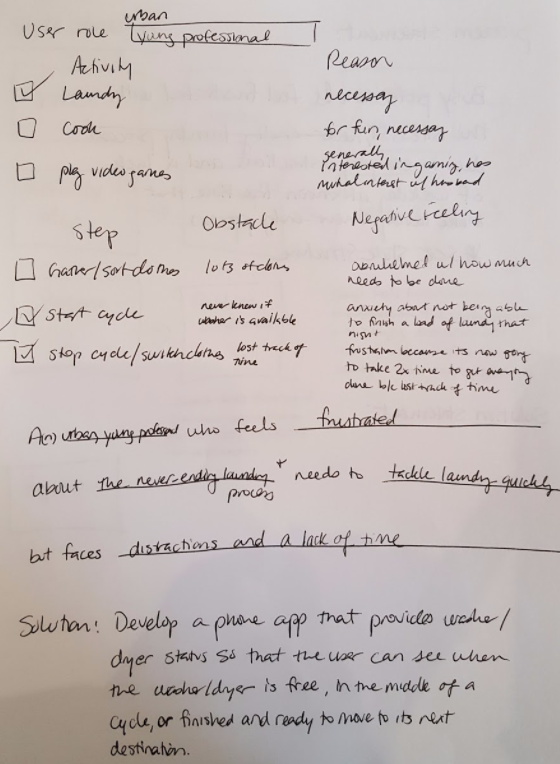 urban
User role yung professional
Activity Reason
Laundy necessay
Cook for fun, necessay
play video games generally interested in gaming, has
mutual interest w/ husband
Step Obstacle Negative Feeling
Gather/sort clothes lots of clothes overwhelmed w/ how much
needs to be done
Start cycle never know if
washer is availible
anxiety about not being able
to finish a load of laundy that
night
Stop cycle/switch clothes lost track of
time
frustration because its now going
to take 2x time to get everything
done b/c lost track of time
A(n) urban yung professional who feels frustrated
about the never-ending laundry + needs to tackle laundry quickly
process
but faces distractions and a lack of time
Solution: Develop a phone app that provides washer/
dryer status so that the user can see when
the washer/dryer is free, in the middle of a
cycle, or finished and ready to move to its next
destination.